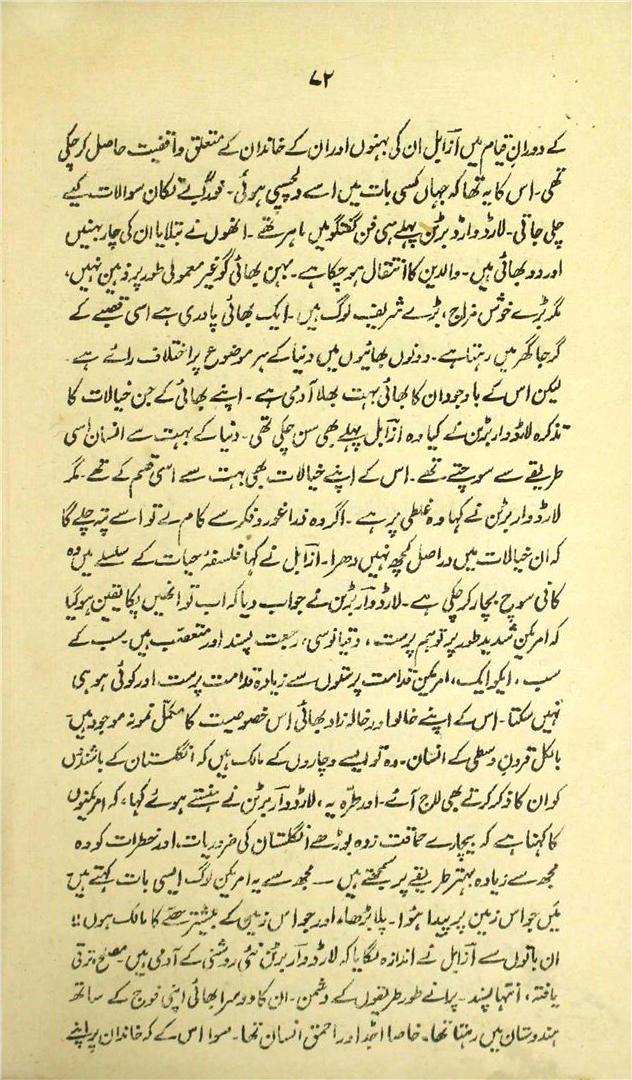 ۷۲
کے دوران قیام میں آزابل ان کی بہنوں اور ان کے خاندان کے متعلق واقفیت حاصل کر چکی
تھی۔ اس کا یہ تھا کہ جہاں کسی بات میں اسے دلچسپی ہوئی۔ فوراً بے تکان سوالات کیے
چلی جاتی۔ لارڈ وار برٹن پہلے ہی فن گفتگو میں ماہر تھے۔ انھوں نے بتلایا ان کی چار بہنیں
اور دو بھائی ہیں۔ والدین کا انتقال ہو چکا ہے۔ بہن بھائی گو غیر معمولی طور پر ذہین نہیں،
مگر بڑے خوش مزاج، بڑے شریف لوگ ہیں۔ ایک بھائی پادری ہے اسی قصبے کے
گرجا گھر میں رہتا ہے۔ دونوں بھائیوں میں دنیا کے ہر موضوع پر اختلاف رائے ہے۔
لیکن اس کے باوجود ان کا بھائی بہت بھلا آدمی ہے۔ اپنے بھائی کے جن خیالات کا
تذکرہ لارڈ وار برٹن نے کیا وہ ازابل پہلے بھی سن چکی تھی۔ دنیا کے بہت سے انسان اسی
طریقے سے سوچتے تھے۔ اس کے اپنے خیالات بھی بہت سے اسی قسم کے تھے۔ مگر
لارڈ وار برٹن نے کہا وہ غلطی پر ہے۔ اگر وہ ذرا غور و فکر سے کام لے تو اسے پتہ چلے گا
کہ ان خیالات میں دراصل کچھ نہیں دھرا۔ ازابل نے کہا فلسفۂ حیات کے سلسلے میں وہ
کافی سوچ بچار کر چکی ہے۔ لارڈ وار برٹن نے جواب دیا کہ اب تو انھیں پکا یقین ہو گیا
کہ امریکن شدید طور پر توہم پرست، دقیانوسی، رجعت پسند اور متعصب ہیں۔ سب کے
سب، ایکو ایک، امریکن قدامت پرستوں سے زیادہ قدامت پرست اور کوئی ہو ہی
نہیں سکتا۔ اس کے اپنے خالو اور خالہ زاد بھائی اس خصوصیت کا مکمل نمونہ موجود ہیں
بالکل قرون وسطیٰ کے انسان۔ وہ تو ایسے وچاروں کے مالک ہیں کہ انگلستان کے باشندوں
کو ان کا ذکر کرتے بھی لاج آئے۔ اور طرّہ یہ، لارڈ وار برٹن نے ہنستے ہوئے کہا، کہ امریکنوں
کا کہنا ہے کہ بیچارے حماقت زدہ بوڑھے انگلستان کی ضروریات، اور خطرات کو وہ
مجھ سے زیادہ بہتر طریقے پر سمجھتے ہیں — مجھ سے یہ امریکن لوگ ایسی بات کہتے ہیں
میں جو اس زمین پر پیدا ہوا۔ پلا بڑھا، اور جو اس زمین کے بیشتر حصّے کا مالک ہوں!!
ان باتوں سے آزابل نے اندازہ لگایا کہ لارڈ وار برٹن نئی روشنی کے آدمی ہیں۔ مصلح، ترقی
یافتہ، انتہا پسند۔ پرانے طور طریقوں کے دشمن۔ ان کا دوسرا بھائی اپنی فوج کے ساتھ
ہندوستان میں رہتا تھا۔ خاصا اجڈ اور احمق انسان تھا۔ سوا اس کے کہ خاندان پر اپنے